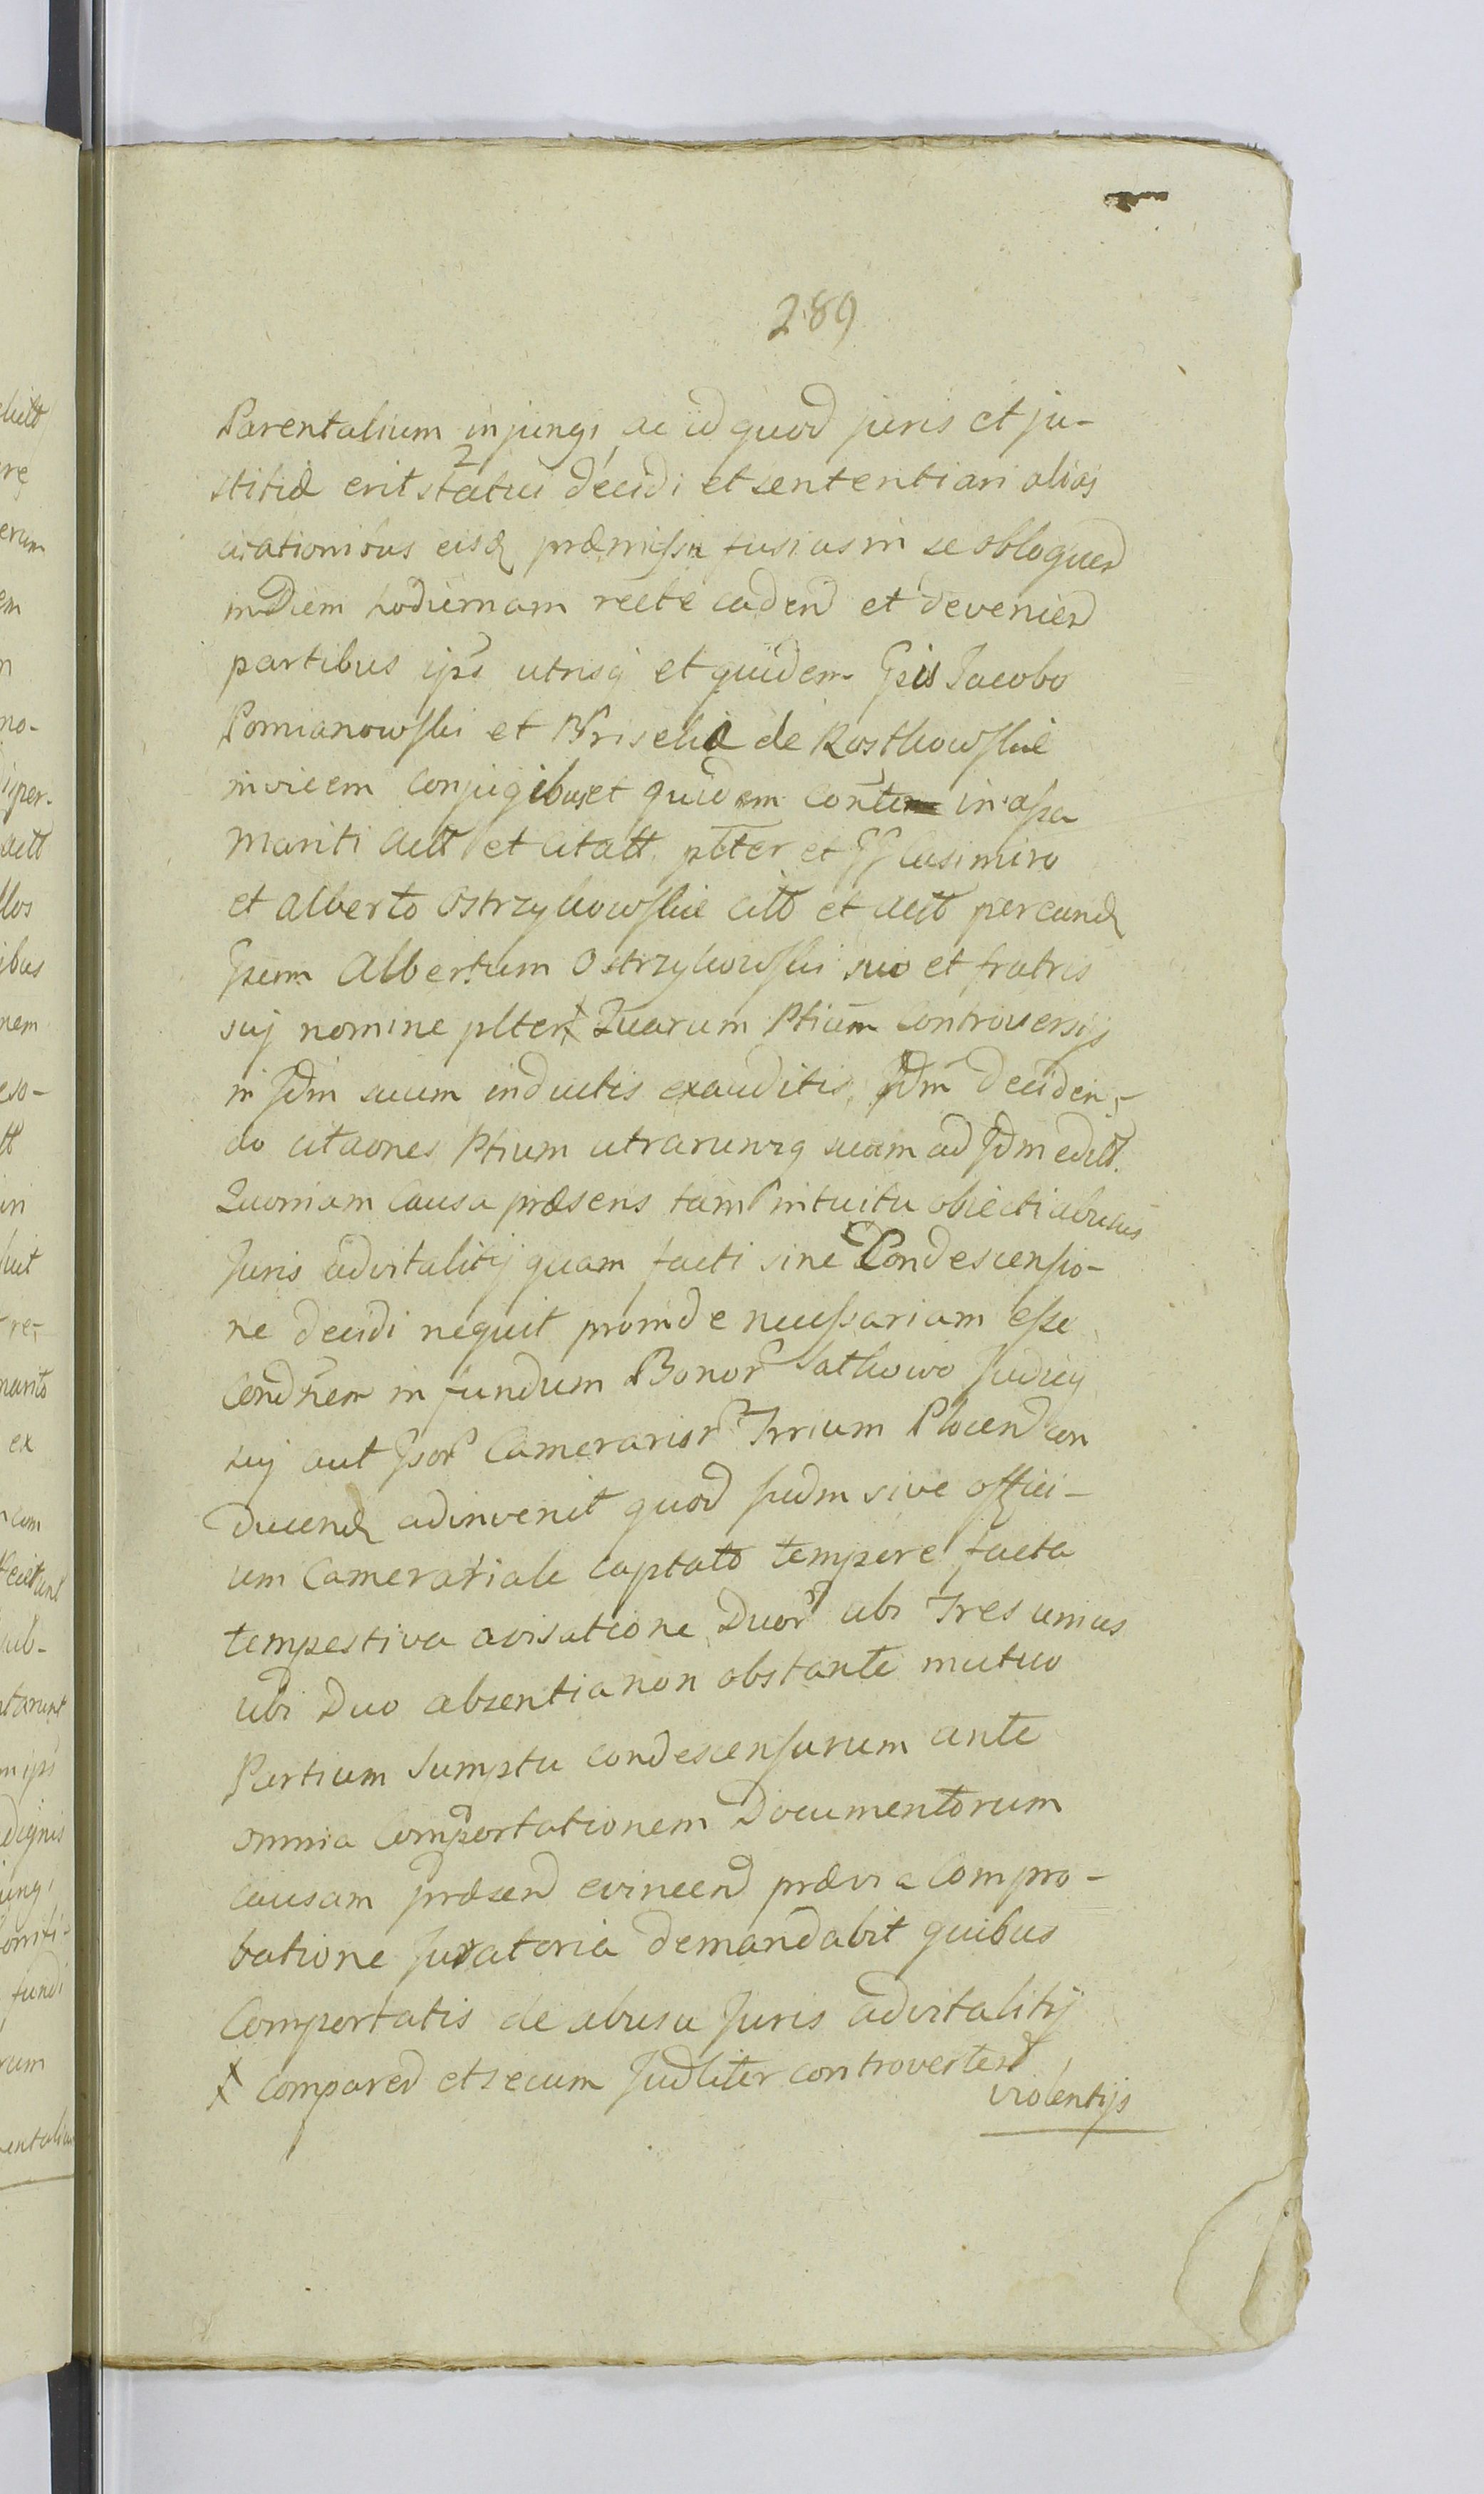 289
Parentalium injungi ac id quod juris et ju-
stitiæ erit statui decidi et sententiari alias
citationibus eisd præmissa fusius in se obloquen
in Diem hodiernam recte caden et devenien
partibus ips utrisq et quidem Gsis Jacobo
Pomianowski et Briseliæ de Rosthowskie
invicem conjugibus et quidem Conte in assa
mariti actt et citatt plter et GG Casimiro
et Alberto Ostrzykowskie citt et actt per eund
Gsum Albertum Ostrzykowski suo et fratris
suj nomine plter ⨯ Quarum Ptium Controversijs
in Jdm suum inductis exauditis Jdm deciden-
do citaones Ptium utrarumq suam ad Jdm editt
Quoniam Causa præsens tam intuitu objecti abusus
Juris advitalitij quam facti sine Condescensio-
ne decidi nequit proinde necessariam esse
Condnem in fundum Bonor Sathowo Judicij
suj aut Gsor Camerarior Trrium Plocen con
ducend adinvenit quod judm sive offici-
um Camerariale captato tempore facta
tempestiva avisatione Duor ubi Tres unius
ubi Duo absentia non obstante mutuo
Partium Sumptu condescensurum ante
omnia Comportationem Documentorum
causam præsen evincen prævia compro-
batione Juratoria demandabit quibus
Comportatis de abusu Juris advitalitij
⨯ comparen et secum Judliter controverten
violentijs